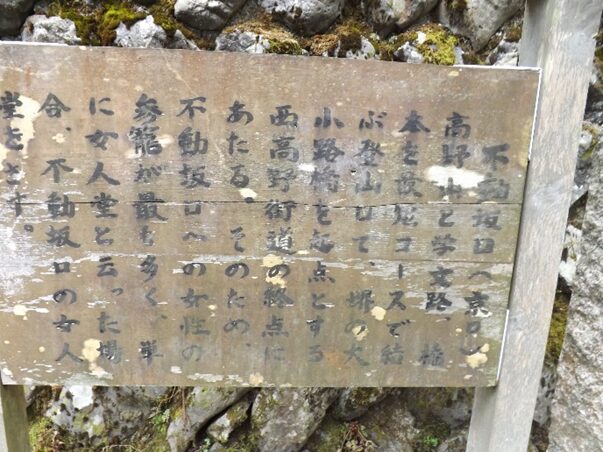 不動坂口(京口)
高野山と学文路、橋
本を最短コースで結
ぶ登山口で、堺の大
小路橋を起点とする
西高野街道の終点に
あたる。そのため、
不動坂口への女性の
参籠が最も多く、単
に女人堂と云った場
合、不動坂口の女人
堂をさす。